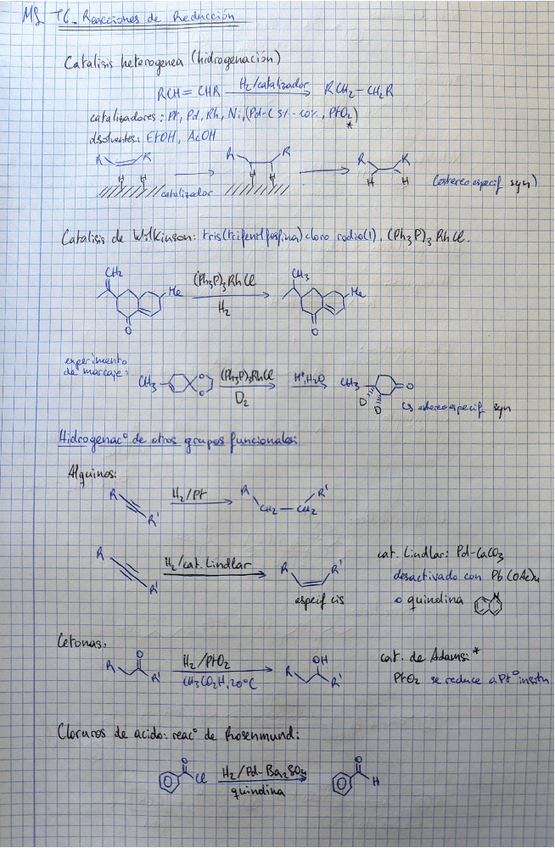 MS T6_ Reacciones de Reducción
Catálisis heterogénea (hidrogenación)
RCH=CHR H₂/catalizador RCH₂-CH₂R
catalizadores: Pt, Pd, Rh, Ni, (Pd-C 5%-10%, PtO₂)
*
disolventes: EtOH, AcOH
R R R R R R
H H H H H H
catalizador
(estereoespecíf syn)
Catálisis de Wilkinson: tris(trifenilfosfina)cloro rodio(I), (Ph₃P)₃RhCl.
CH₂ Me (Ph₃P)₃RhCl CH₃ Me
O H₂ O
experimento
de marcaje:
CH₃ O O (Ph₃P)₃RhCl H⁺, H₂O CH₃ O
D₂ D D
estereoespecíf syn
Hidrogenacº de otros grupos funcionales:
Alquinos:
R R' H₂/Pt R CH₂-CH₂ R'
R R' H₂/cat. Lindlar R R'
especif cis
cat. Lindlar: Pd-CaCO₃
desactivado con Pb(OAc)₄
o quinolina N
Cetonas:
R O R' H₂/PtO₂ R OH R'
CH₃CO₂H, 20°C
cat. de Adams: *
PtO₂ se reduce a Ptº insitu
Cloruros de ácido: reacº de Rosenmund:
O Cl H₂/Pd-Ba₂SO₄ O H
quinolina